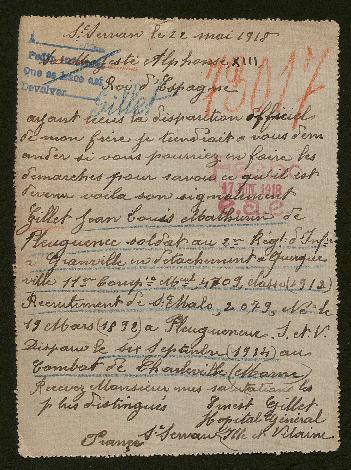 St Servan le 22 mai 1918
Sa Majesté Alphonse XIII
Roy d'Espagne
Gillet
73017
ayant reçus la disparition officiel
de mon frère je tiendrait a vous dem
ander si vous pourriez me faire les
démarches pour savoir ce qu'il est
devenu voila son signalement
17 JUN. 1918
Gillet Jean Louis Mathurin de
Pleugueneuc soldat au 2me Régt d'Infie
a Granville en détachement a Querque
ville 11e Compie Mle 4709 classe (1912)
Recrutement de St Malo, 2079, Né le
19 Mars (1892) a Pleugueneuc I. et V.
Disparu le six Septembre (1914) au
Combat de Charleville (Marne)
Recevez Monsieur mes salutations les
plus distingués
Ernest Gillet
Hopital Général
St Servan Ille et Vilaine
France